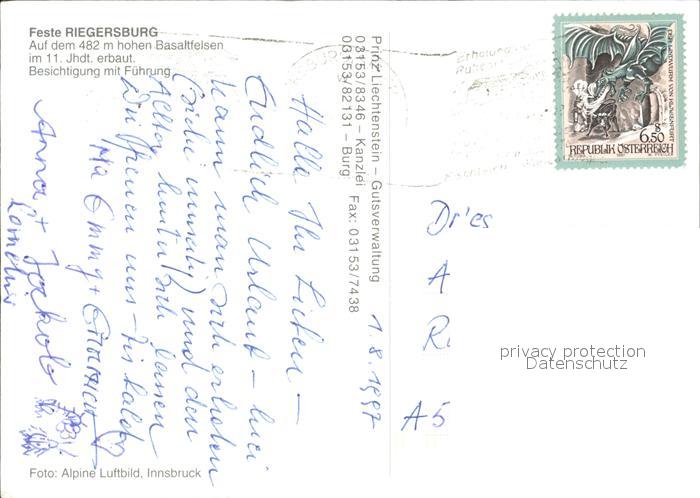 Feste RIEGERSBURG
Auf dem 482 m hohen Basaltfelsen
im 11. Jhdt. erbaut.
Besichtigung mit Führung
Prinz Liechtenstein – Gutsverwaltung
03153/8346 – Kanzlei Fax: 03153/7438
03153/82131 – Burg
1.8.1997
Hallo Ihr Lieben –
Endlich Urlaub – hier
kann man sich erholen
und den
Alltag hinter sich lassen
Wir freuen uns – bis bald
Anna + Jakob
Cornelius
DER LINDWURM VON KLAGENFURT
S 6.50
REPUBLIK ÖSTERREICH
1997
Dr'es
A
R
A5
privacy protection
Datenschutz
Foto: Alpine Luftbild, Innsbruck